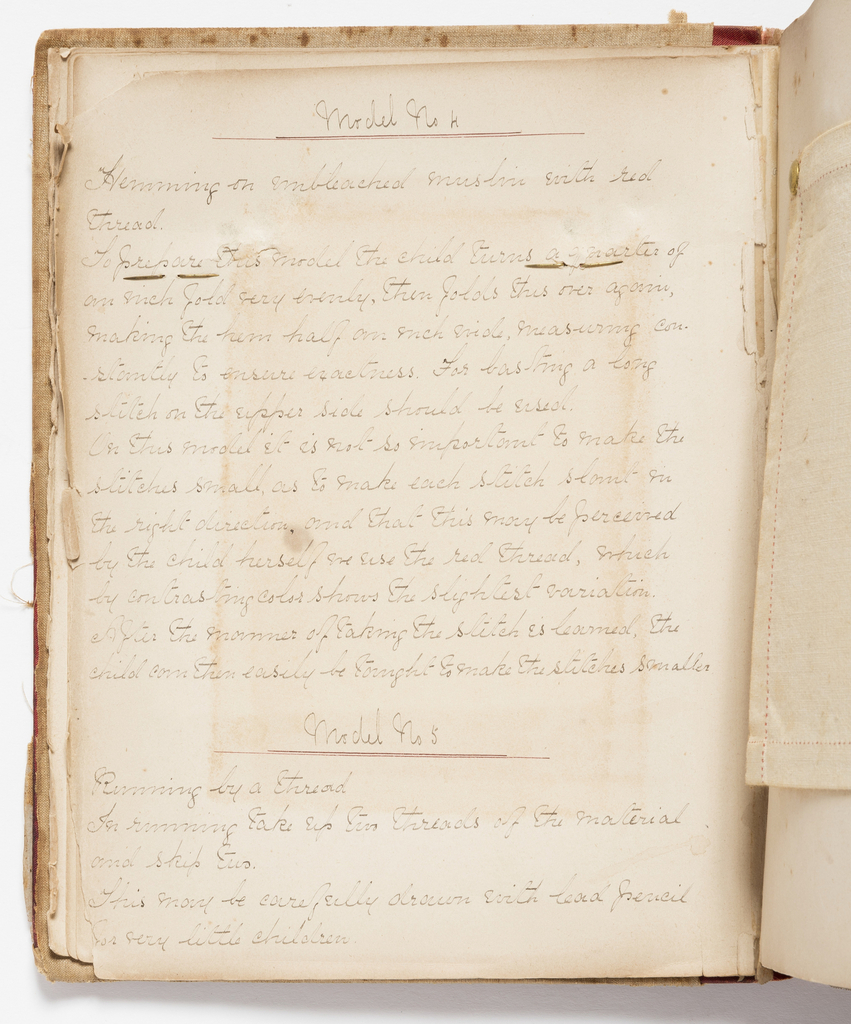 Model No 4
Hemming on unbleached muslin with red
thread.
To prepare this model the child turns a quarter of
an inch fold very evenly, then folds this over again,
making the hem half an inch wide, measuring con-
stantly to ensure exactness. For basting a long
stitch on the upper side should be used.
In this model it is not so important to make the
stitches small, as to make each stitch slant in
the right direction, and that this may be perceived
by the child herself we use the red thread, which
by contrasting color shows the slightest variation.
After the manner of taking the stitch is learned, the
child can then easily be taught to make the stitches smaller
Model No 5
Running by a thread
In running take up two threads of the material
and skip two.
This may be carefully drawn with lead pencil
for very little children.